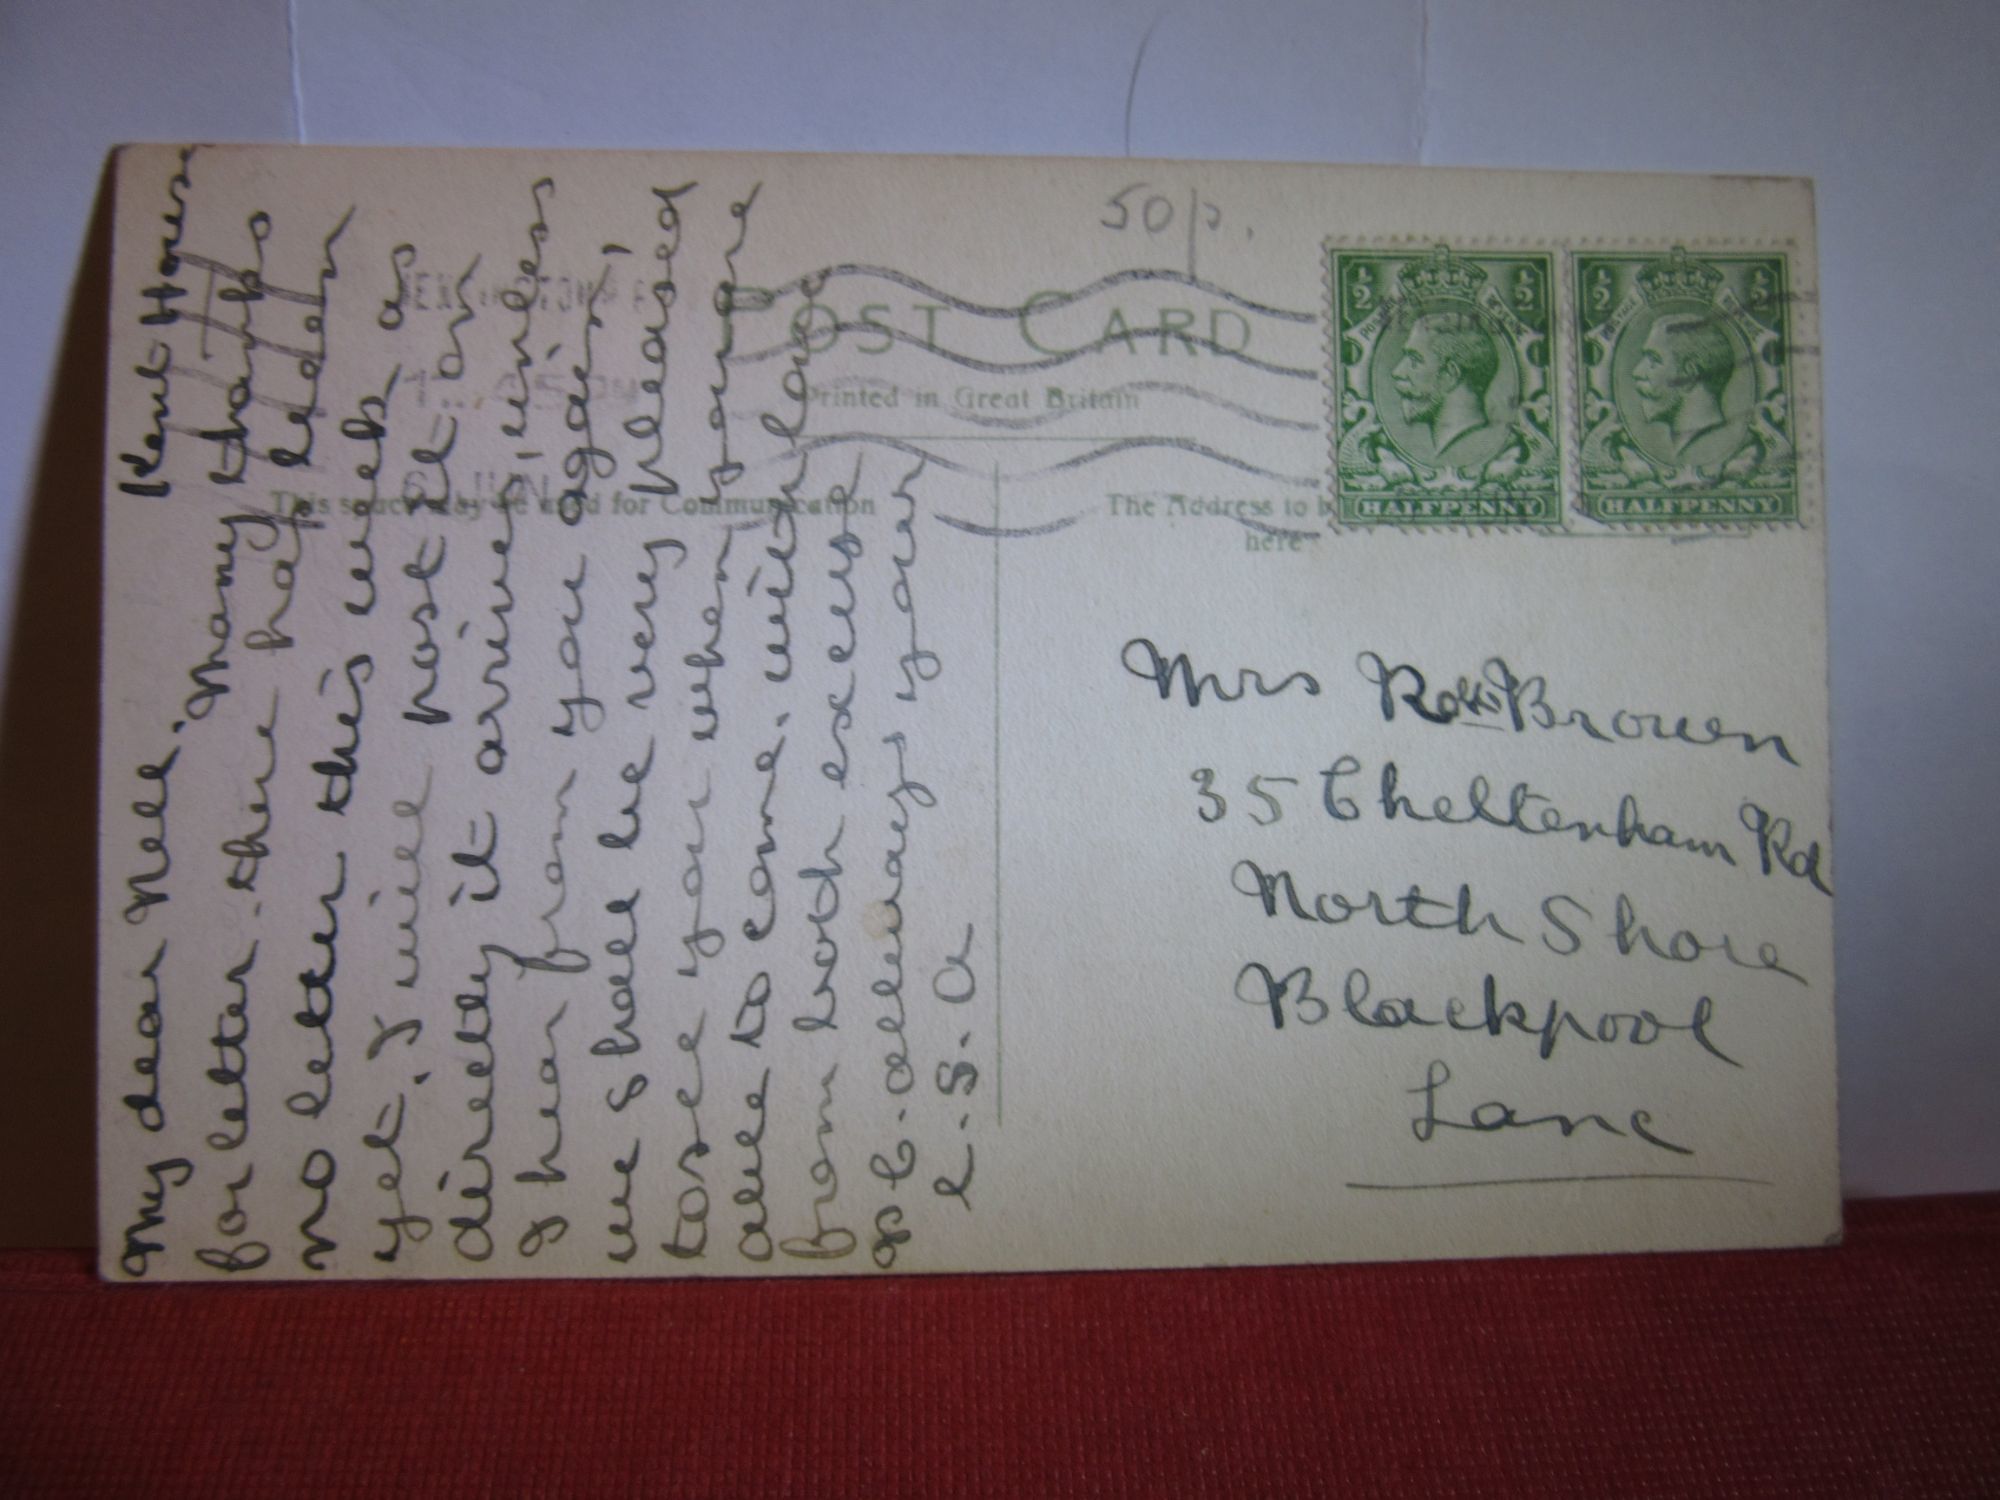 Kent House
My dear Nell. Many thanks
for letter. there has been
no letter this week as
yet. I will post it on
directly it arrives, unless
I hear from you again,
we shall be very pleased
to see you when you are
able to come. with love
from both excuse
P C. always your
L. S. A
50p.
POST CARD
Printed in Great Britain
This space may be used for Communication
The Address to b
here
6 JUN
½ ½
HALFPENNY
½ ½
HALFPENNY
Mrs Brown
35 Cheltenham Rd
North Shore
Blackpool
Lanc